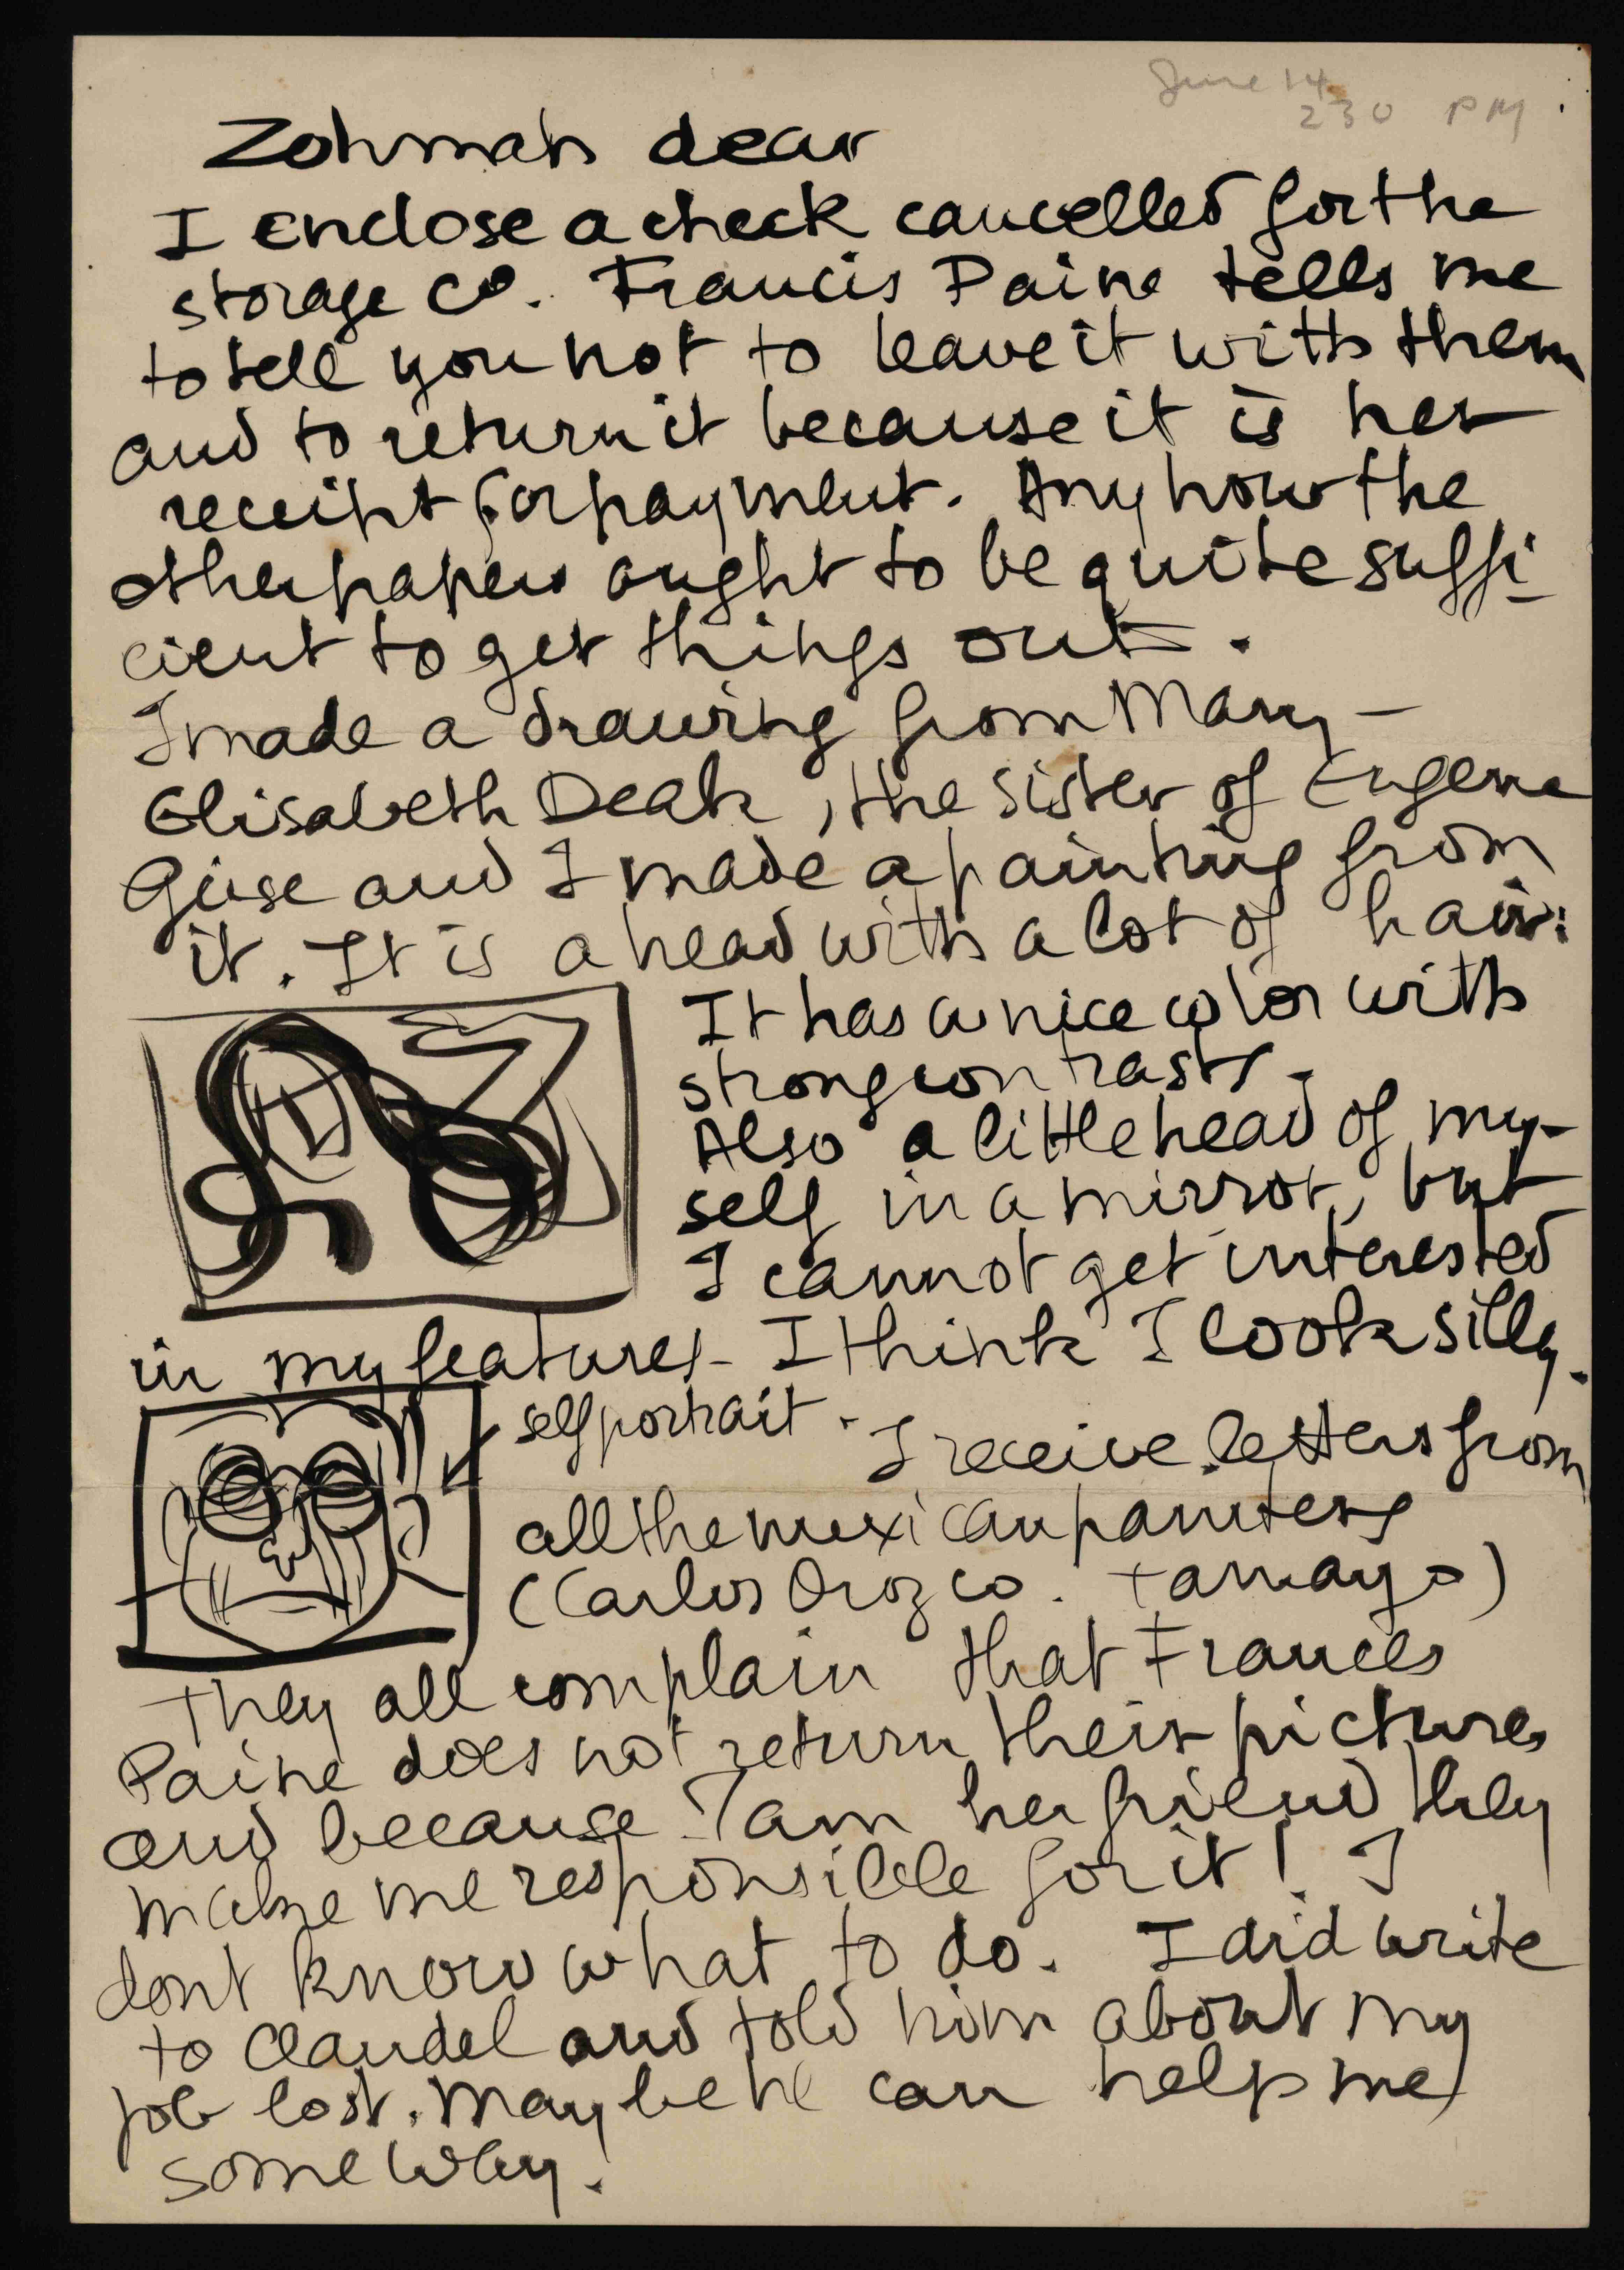 June 14
230 PM
Zohmah dear
I enclose a check cancelled for the
storage co. Francis Paine tells me
to tell you not to leave it with them
and to return it because it is her
receipt for payment. Anyhow the
other papers ought to be quite suffi-
cient to get things out.
I made a drawing from Mary-
Elisabeth Deak, the sister of Eugene
Guse and I made a painting from
it. It is a head with a lot of hair:
It has a nice color with
strong contrasts.
Also a little head of my-
self in a mirror, but
I cannot get interested
in my features - I think I look silly.
selfportrait.
I receive letters from
all the mexican painters
(Carlos Orozco. tamayo)
They all complain that Frances
Paine does not return their pictures
and because I am her friend they
make me responsible for it! I
dont know what to do. I did write
to Claudel and told him about my
job lost. Maybe he can help me
some way.